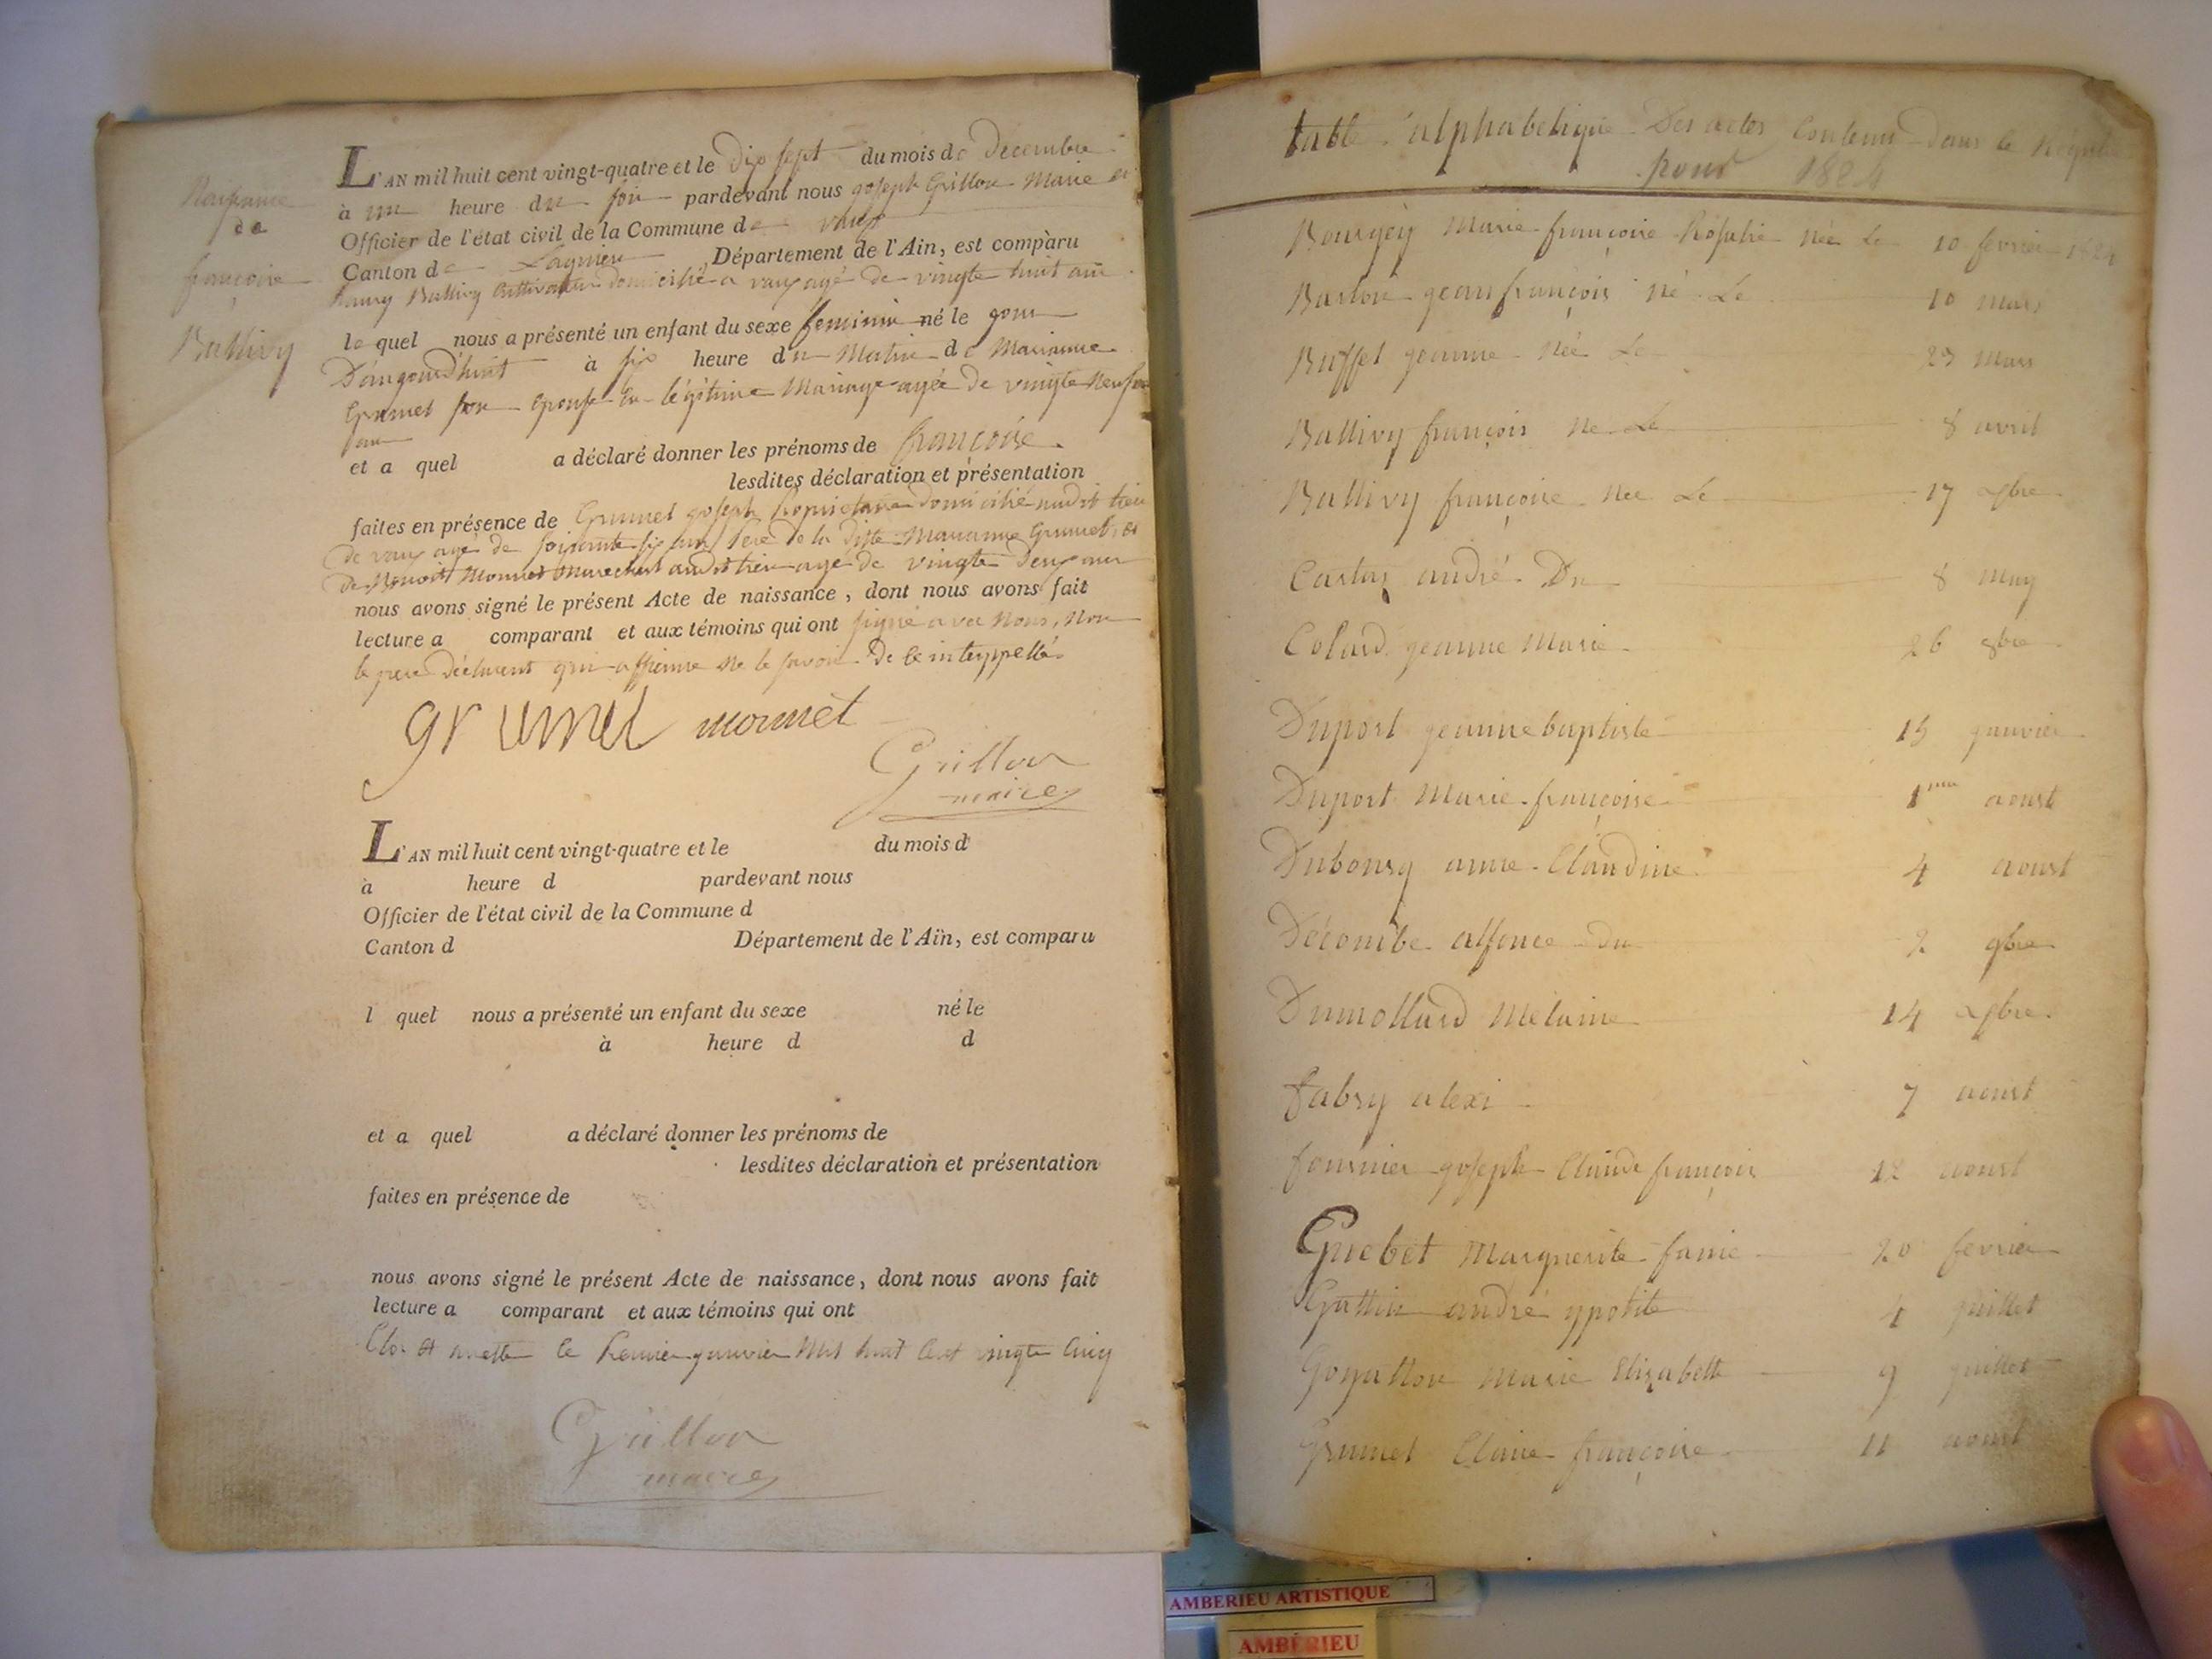 Naissance
de
françoise
Ballivy
L'AN mil huit cent vingt-quatre et le dix sept du mois de decembre
à une heure du soir pardevant nous joseph Grillon Maire et
Officier de l'état civil de la Commune de vaux
Canton de Lagnieu Département de l'Ain, est comparu
Ballivy Cultivateur domicilié a vaux agé de vingte huit ans
le quel nous a présenté un enfant du sexe feminin né le jour
D'aujourd'huit à six heure du Matin de Marianne
Grumel son Epouse en légitime Mariage agée de vingte neuf
ans
et a quel a déclaré donner les prénoms de françoise
lesdites déclaration et présentation
faites en présence de Grumel joseph propriétaire domicilié audit lieu
de vaux agé de soixante six ans père de la ditte Marianne Grumel, et
de Benoit Monnet Marechal audit lieu agé de vingte deux ans
nous avons signé le présent Acte de naissance, dont nous avons fait
lecture a comparant et aux témoins qui ont signé avec nous, non
le pere déclarent qui affirme ne le savoir de ce interppellé
grumel monnet
Grillon
maire
L'AN mil huit cent vingt-quatre et le du mois d
à heure d pardevant nous
Officier de l'état civil de la Commune d
Canton d Département de l'Ain, est comparu
l quel nous a présenté un enfant du sexe né le
à heure d d
et a quel a déclaré donner les prénoms de
lesdites déclaration et présentation
faites en présence de
nous avons signé le présent Acte de naissance, dont nous avons fait
lecture a comparant et aux témoins qui ont
Clos et arette le premier janvier mil huit cent vingte cinq
Grillon
maire
table alphabetique Des actes Contenu Dans le Régistre
pour 1824
Bourgey Marie françoise Rosalie née Le 10 fevrier 1824
Barlon jean françois né Le 10 mars
Buffet jeanne née Le 23 mars
Ballivy françois né Le 8 avril
Ballivy françoise née Le 17 xbre
Carlos andré Du 8 may
Colard jeanne Marie 26 8bre
Duport jeanne baptiste 15 janvier
Duport Marie françoise 1er aoust
Dubourg anne Claudine 4 aoust
Décombe alfonce Du 2 9bre
Dumollard Mélanie 14 xbre
fabry alexi 7 aoust
fournier joseph Claude françois 12 aoust
Guebet Marguerite fanie 20 fevrier
Gallin andré ypolite 4 juillet
Goyatton Marie Elizabette 9 juillet
Grumel Claire françoise 11 aoust
AMBERIEU ARTISTIQUE
AMBÉRIEU